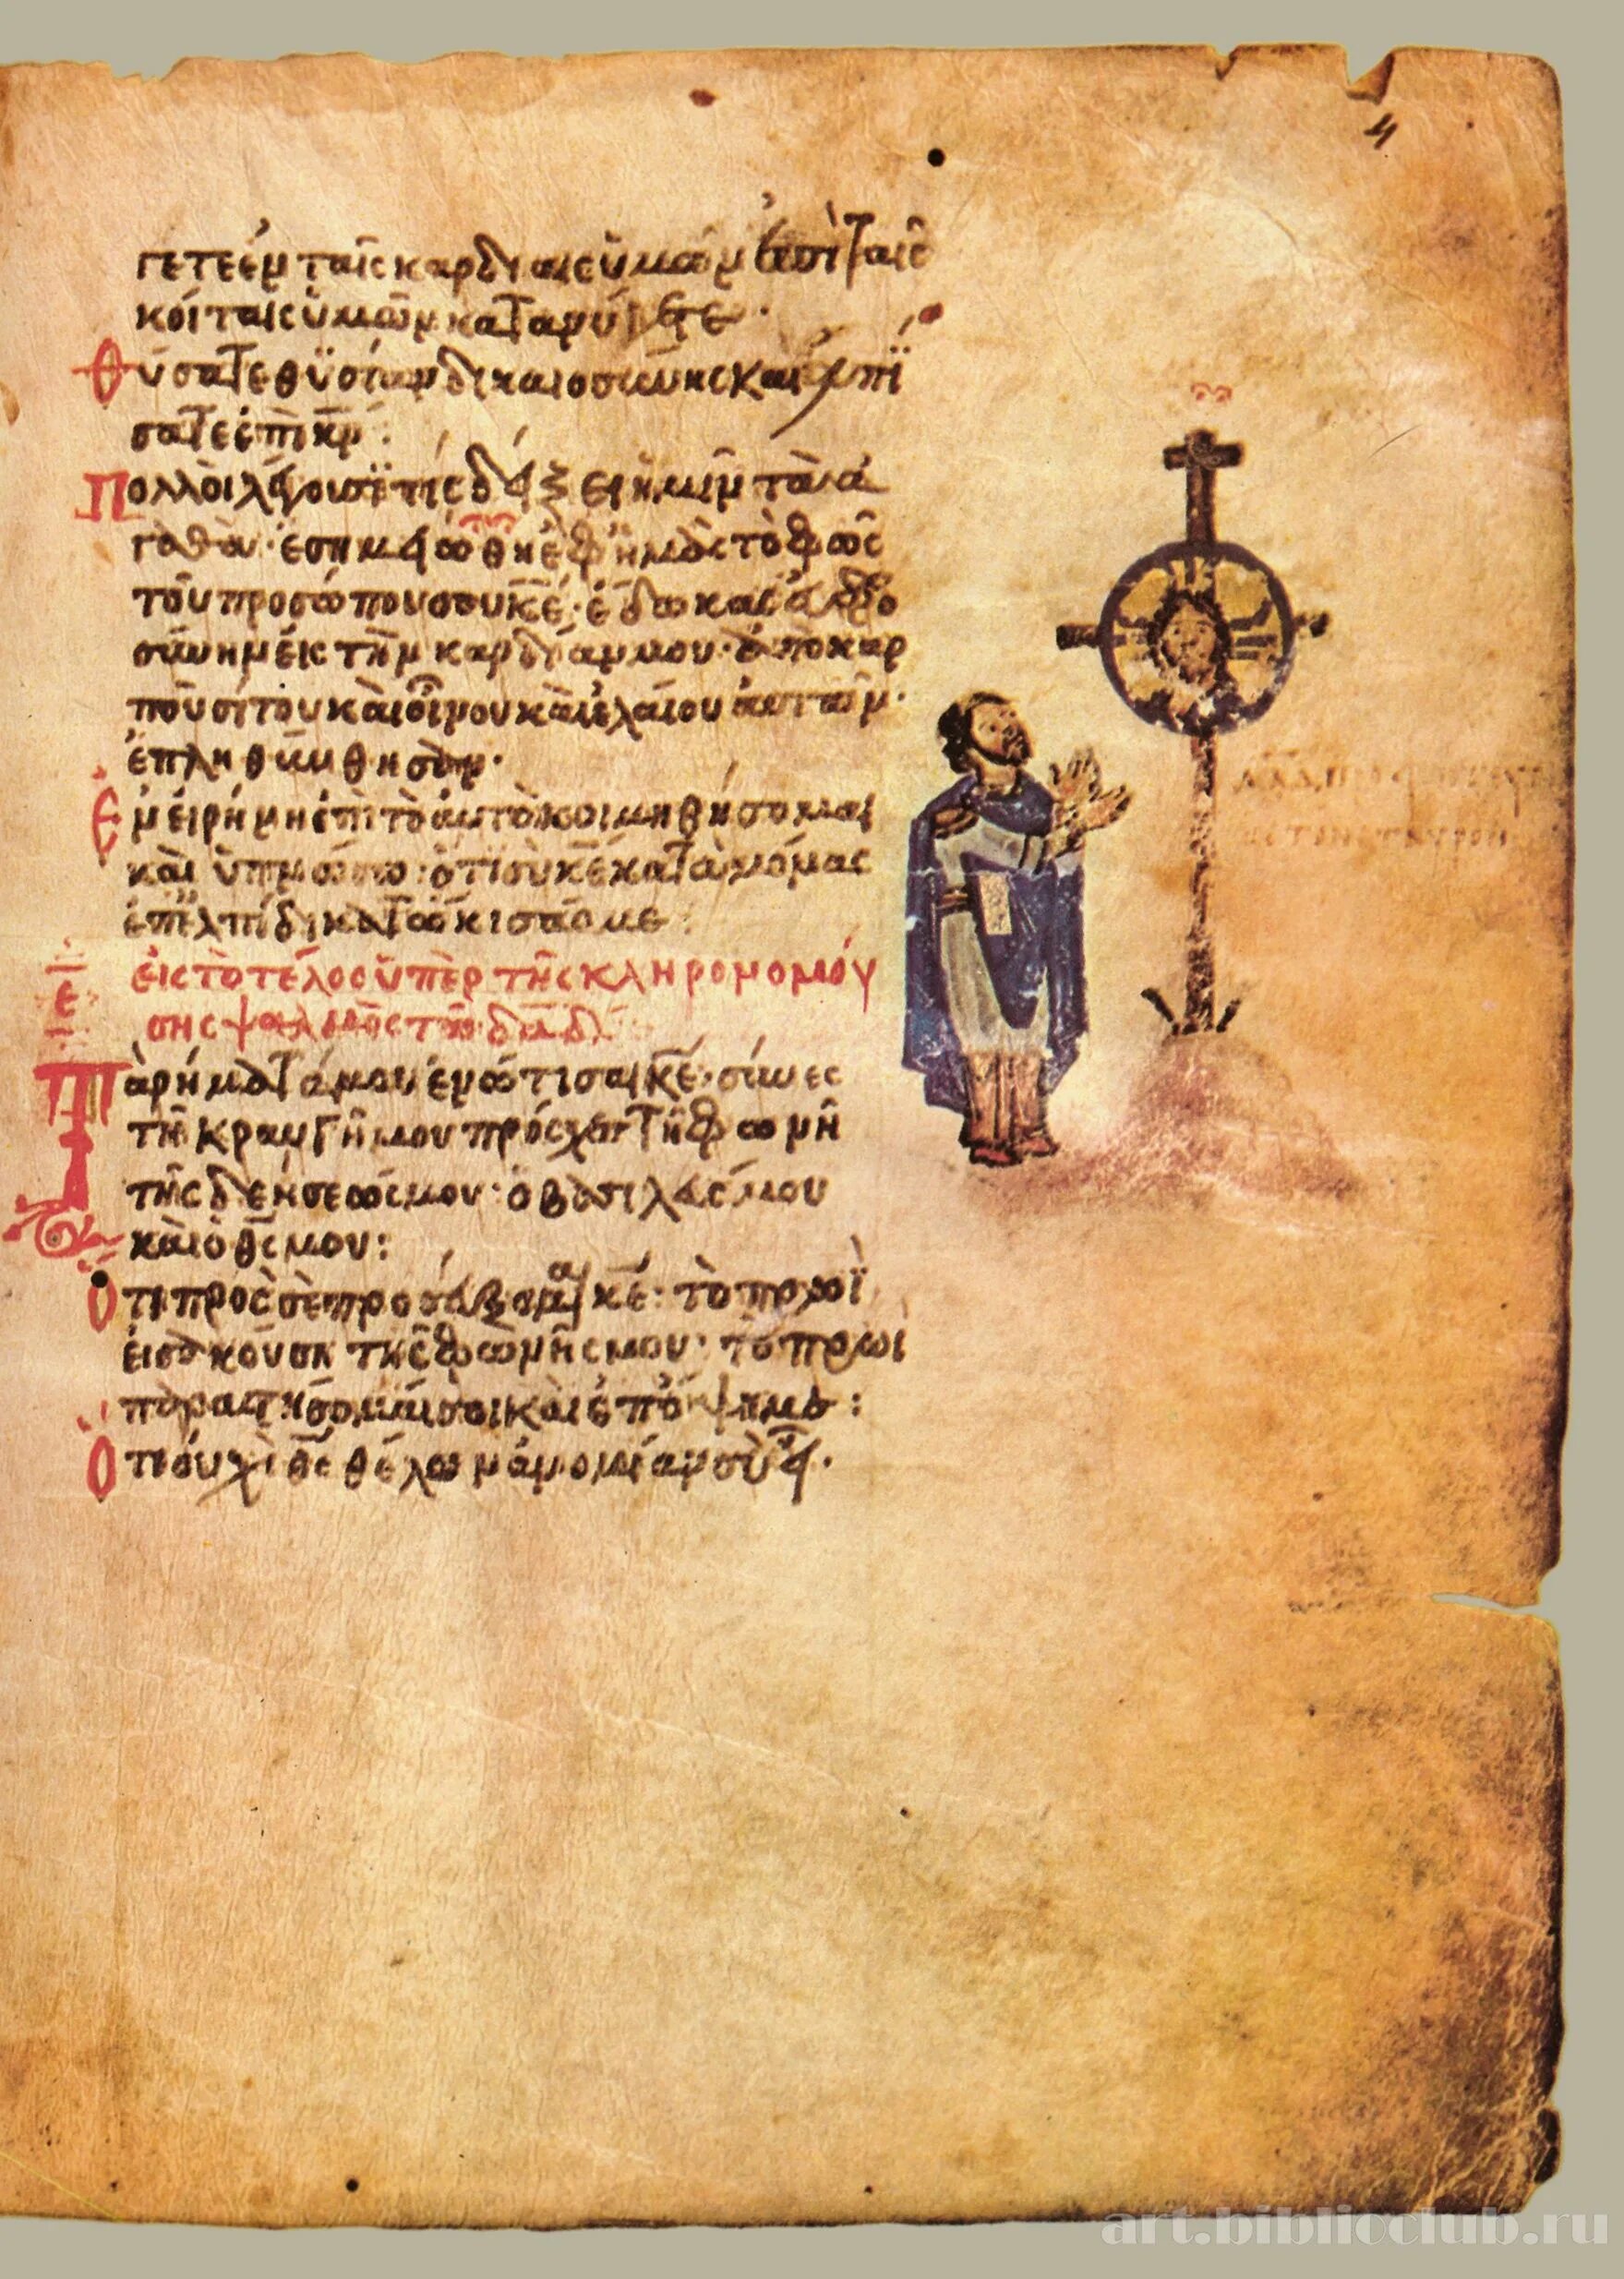 4
γετε ἐν ταῖς καρδίαις ὑμῶν ἐπὶ ταῖς
κοίταις ὑμῶν κατανύγητε·
Θύσατε θυσίαν δικαιοσύνης καὶ ἐλπί
σατε ἐπὶ κν̄:
Πολλοὶ λέγουσι τίς δείξει ἡμῖν τὰ ἀ
γαθά· ἐσημειώθη ἐφ' ἡμᾶς τὸ φῶς
τοῦ προσώπου σου κε̄· ἔδωκας εὐφρο
σύνην εἰς τὴν καρδίαν μου· ἀπὸ καρ
ποῦ σίτου καὶ οἴνου καὶ ἐλαίου αὐτῶν·
ἐπληθύνθησαν·
Ἐν εἰρήνῃ ἐπὶ τὸ αὐτὸ κοιμηθήσομαι
καὶ ὑπνώσω· ὅτι σὺ κε̄ κατὰ μόνας
ἐπ' ἐλπίδι κατῴκισάς με:
ε̄ εἰς τὸ τέλος ὑπὲρ τῆς κληρονομού
σης ψαλμὸς τῷ δᾱδ:
Τὰ ῥήματά μου ἐνώτισαι κε̄· σύνες
τῆς κραυγῆς μου πρόσχες τῇ φωνῇ
τῆς δεήσεώς μου· ὁ βασιλεύς μου
καὶ ὁ θς̄ μου:
Ὅτι πρὸς σὲ προσεύξομαι κε̄· τὸ πρωῒ
εἰσακούσῃ τῆς φωνῆς μου· τὸ πρωῒ
παραστήσομαί σοι καὶ ἐπόψει με:
Ὅτι οὐχὶ θς̄ θέλων ἀνομίαν σὺ εἶ·
art.biblioclub.ru